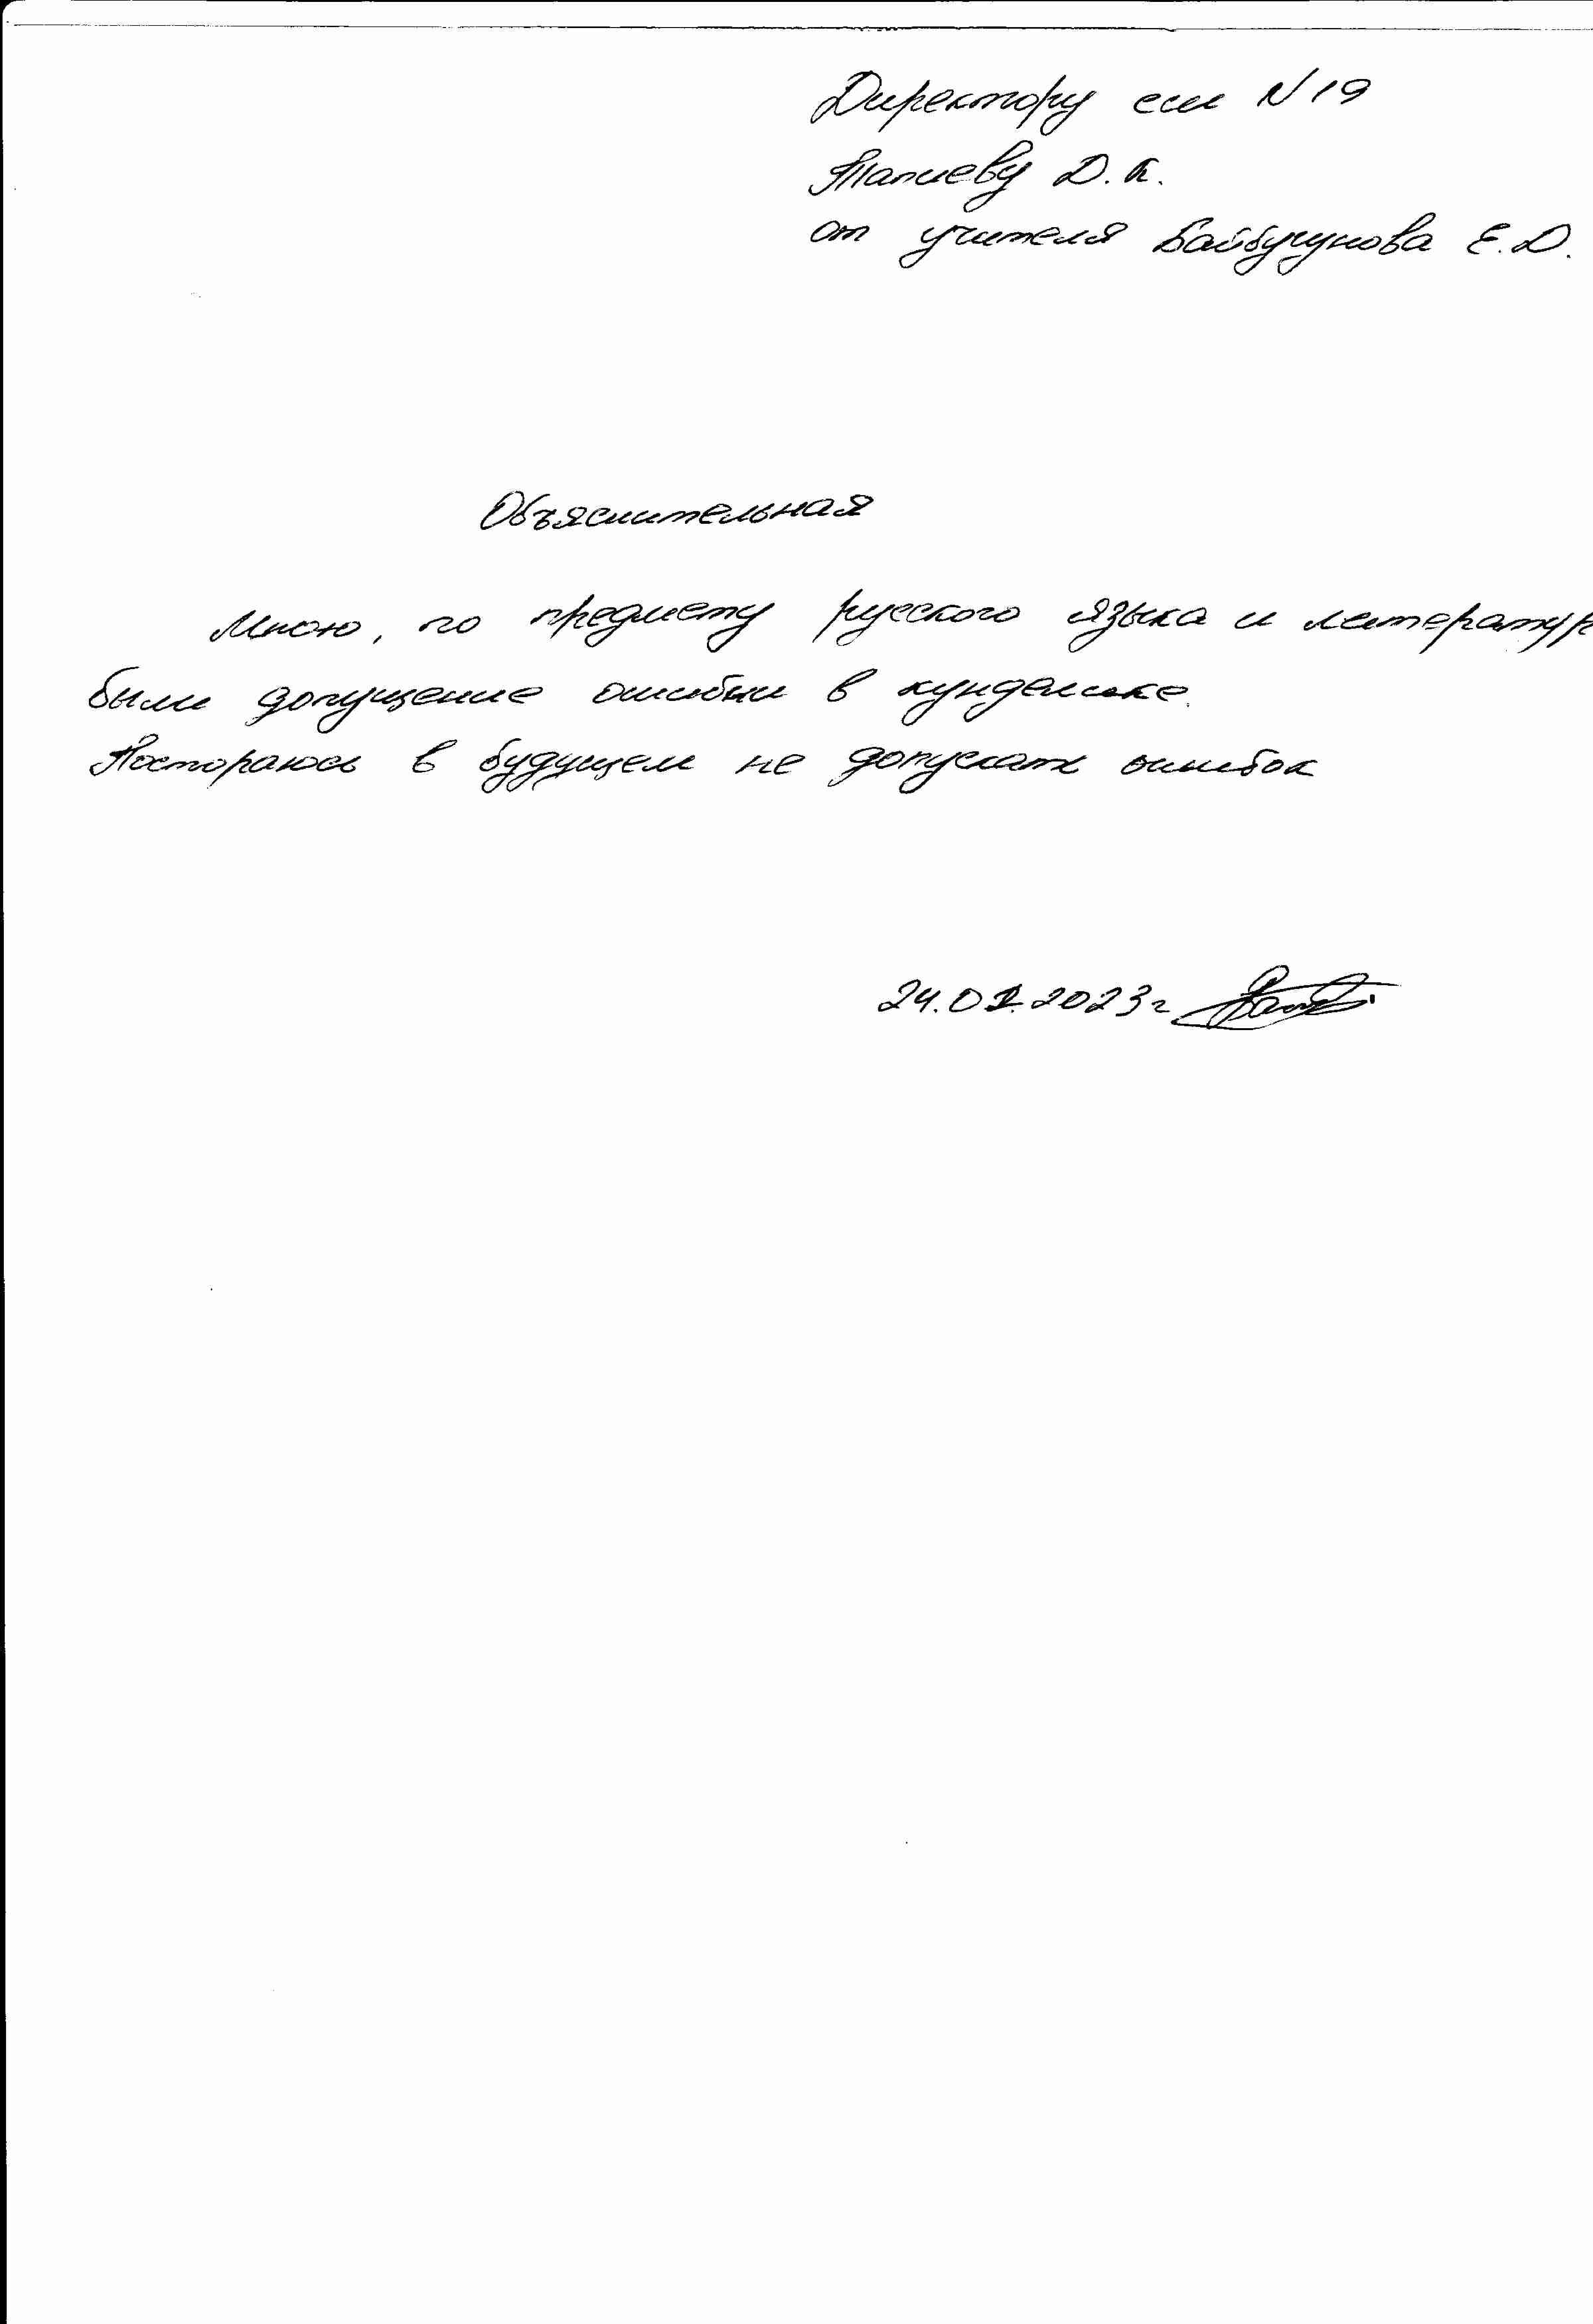 Директору сш N 19
Тапиеву Д.К.
от учителя Байбугунова Е.Д.
Объяснительная
Мною, по предмету русского языка и литератур
были допущение ошибки в кунделике.
Постораюсь в будущем не допускать ошибок
24.02.2023г